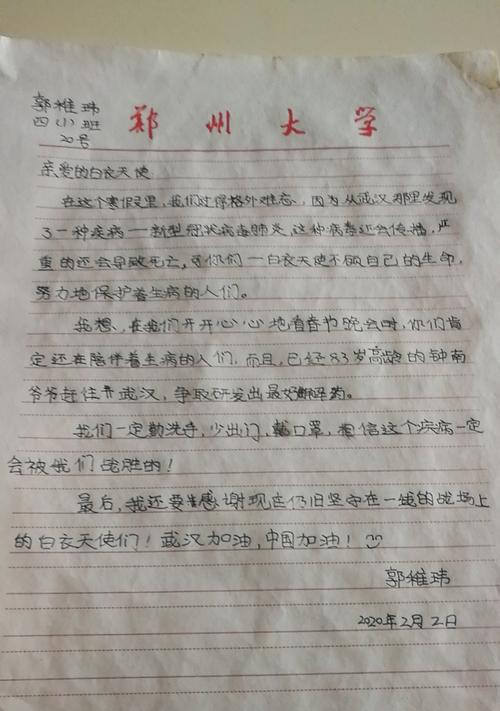 郭稚玮
四(1)班
20号
郑州大学
亲爱的白衣天使
在这个寒假里，我们过得格外难忘，因为从武汉那里发现
了一种疾病——新型冠状病毒肺炎，这种病毒还会传播，严
重的还会导致死亡，可你们—白衣天使不顾自己的生命，
努力地保护着生病的人们。
我想，在我们开开心心地看春节晚会时，你们肯
定还在陪伴着生病的人们，而且，已经83岁高龄的钟南
爷爷赶往武汉，争取研发出最好解药。
我们一定勤洗手，少出门，戴口罩，相信这个疾病一定
会被我们战胜的！
最后，我还要感谢现在仍旧坚守在一线的战场上
的白衣天使们！武汉加油，中国加油！
郭稚玮
2020年2月2日